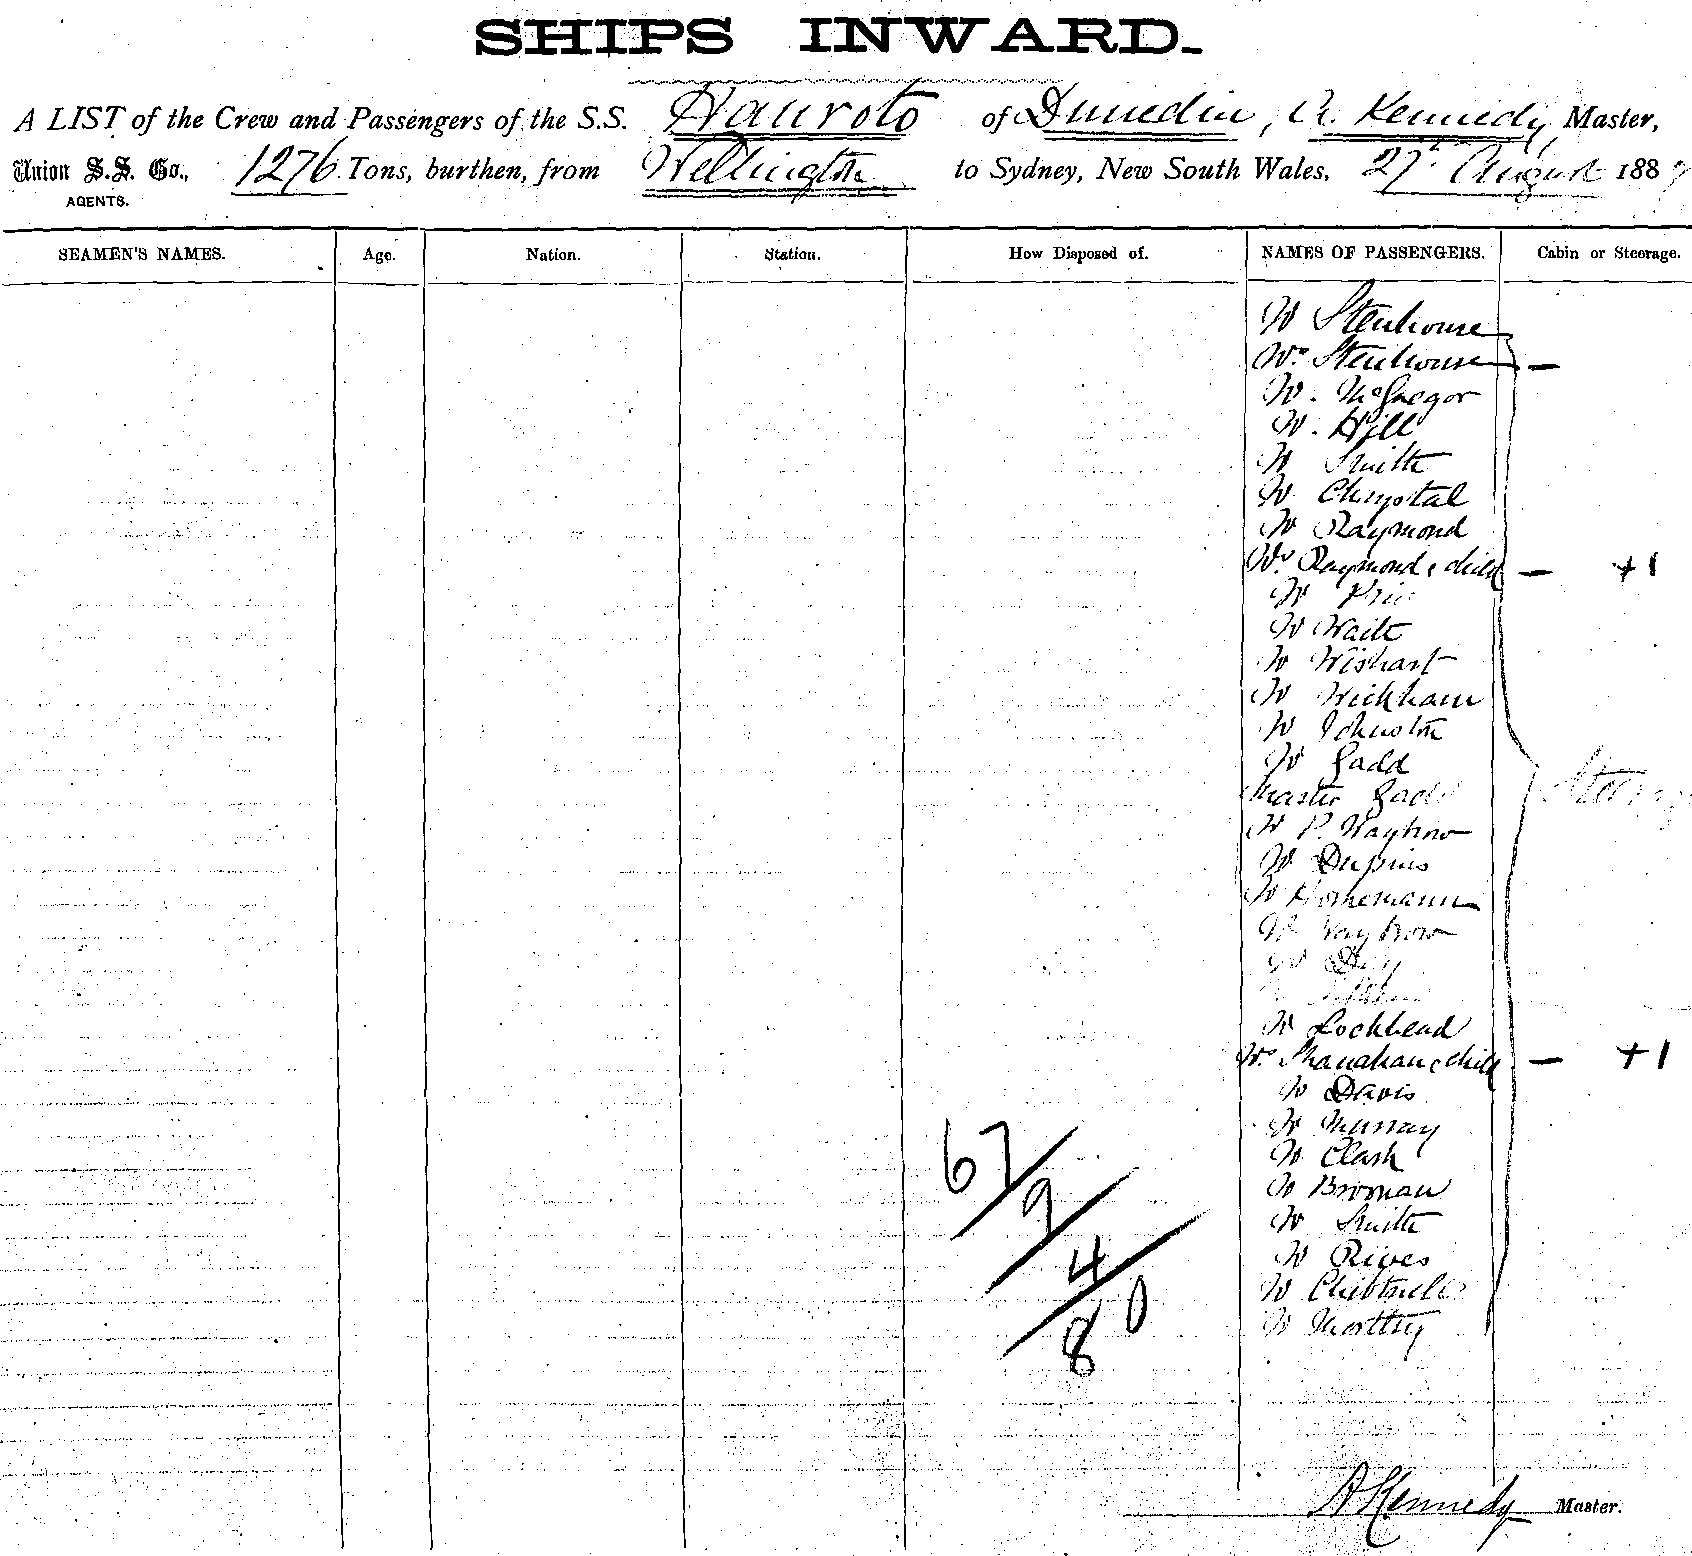 SHIPS INWARD.
A LIST of the Crew and Passengers of the S.S. Hauroto of Dunedin, A. Kennedy, Master,
Union S.S. Co., 1276 Tons, burthen, from Wellington to Sydney, New South Wales, 27th August 188
AGENTS.
SEAMEN'S NAMES. Age. Nation. Station. How Disposed of. NAMES OF PASSENGERS. Cabin or Steerage.
Mr Stenhouse
Mrs Stenhouse —
Mr. McGregor
Mr. Hill
Mr Smith
Mr Chrystal
Mr Raymond
Mrs Raymond & child — +1
Mr
Mr Waite
Mr Wishart
Mr Wickham
Mr Johnston
Mr Gadd
Master Gadd Steerage
Mr P. Waybrow
Mr Dupuis
Mr Hornemann
Mr Waybrow
Mr
Mr Lockhead
Mrs Shanahan & child — +1
Mr Davis
Mr Murray
Mr Clark
Mr Brosnan
Mr Smith
Mr Rives
Mr
Mr
67/9/4/80
A Kennedy Master.